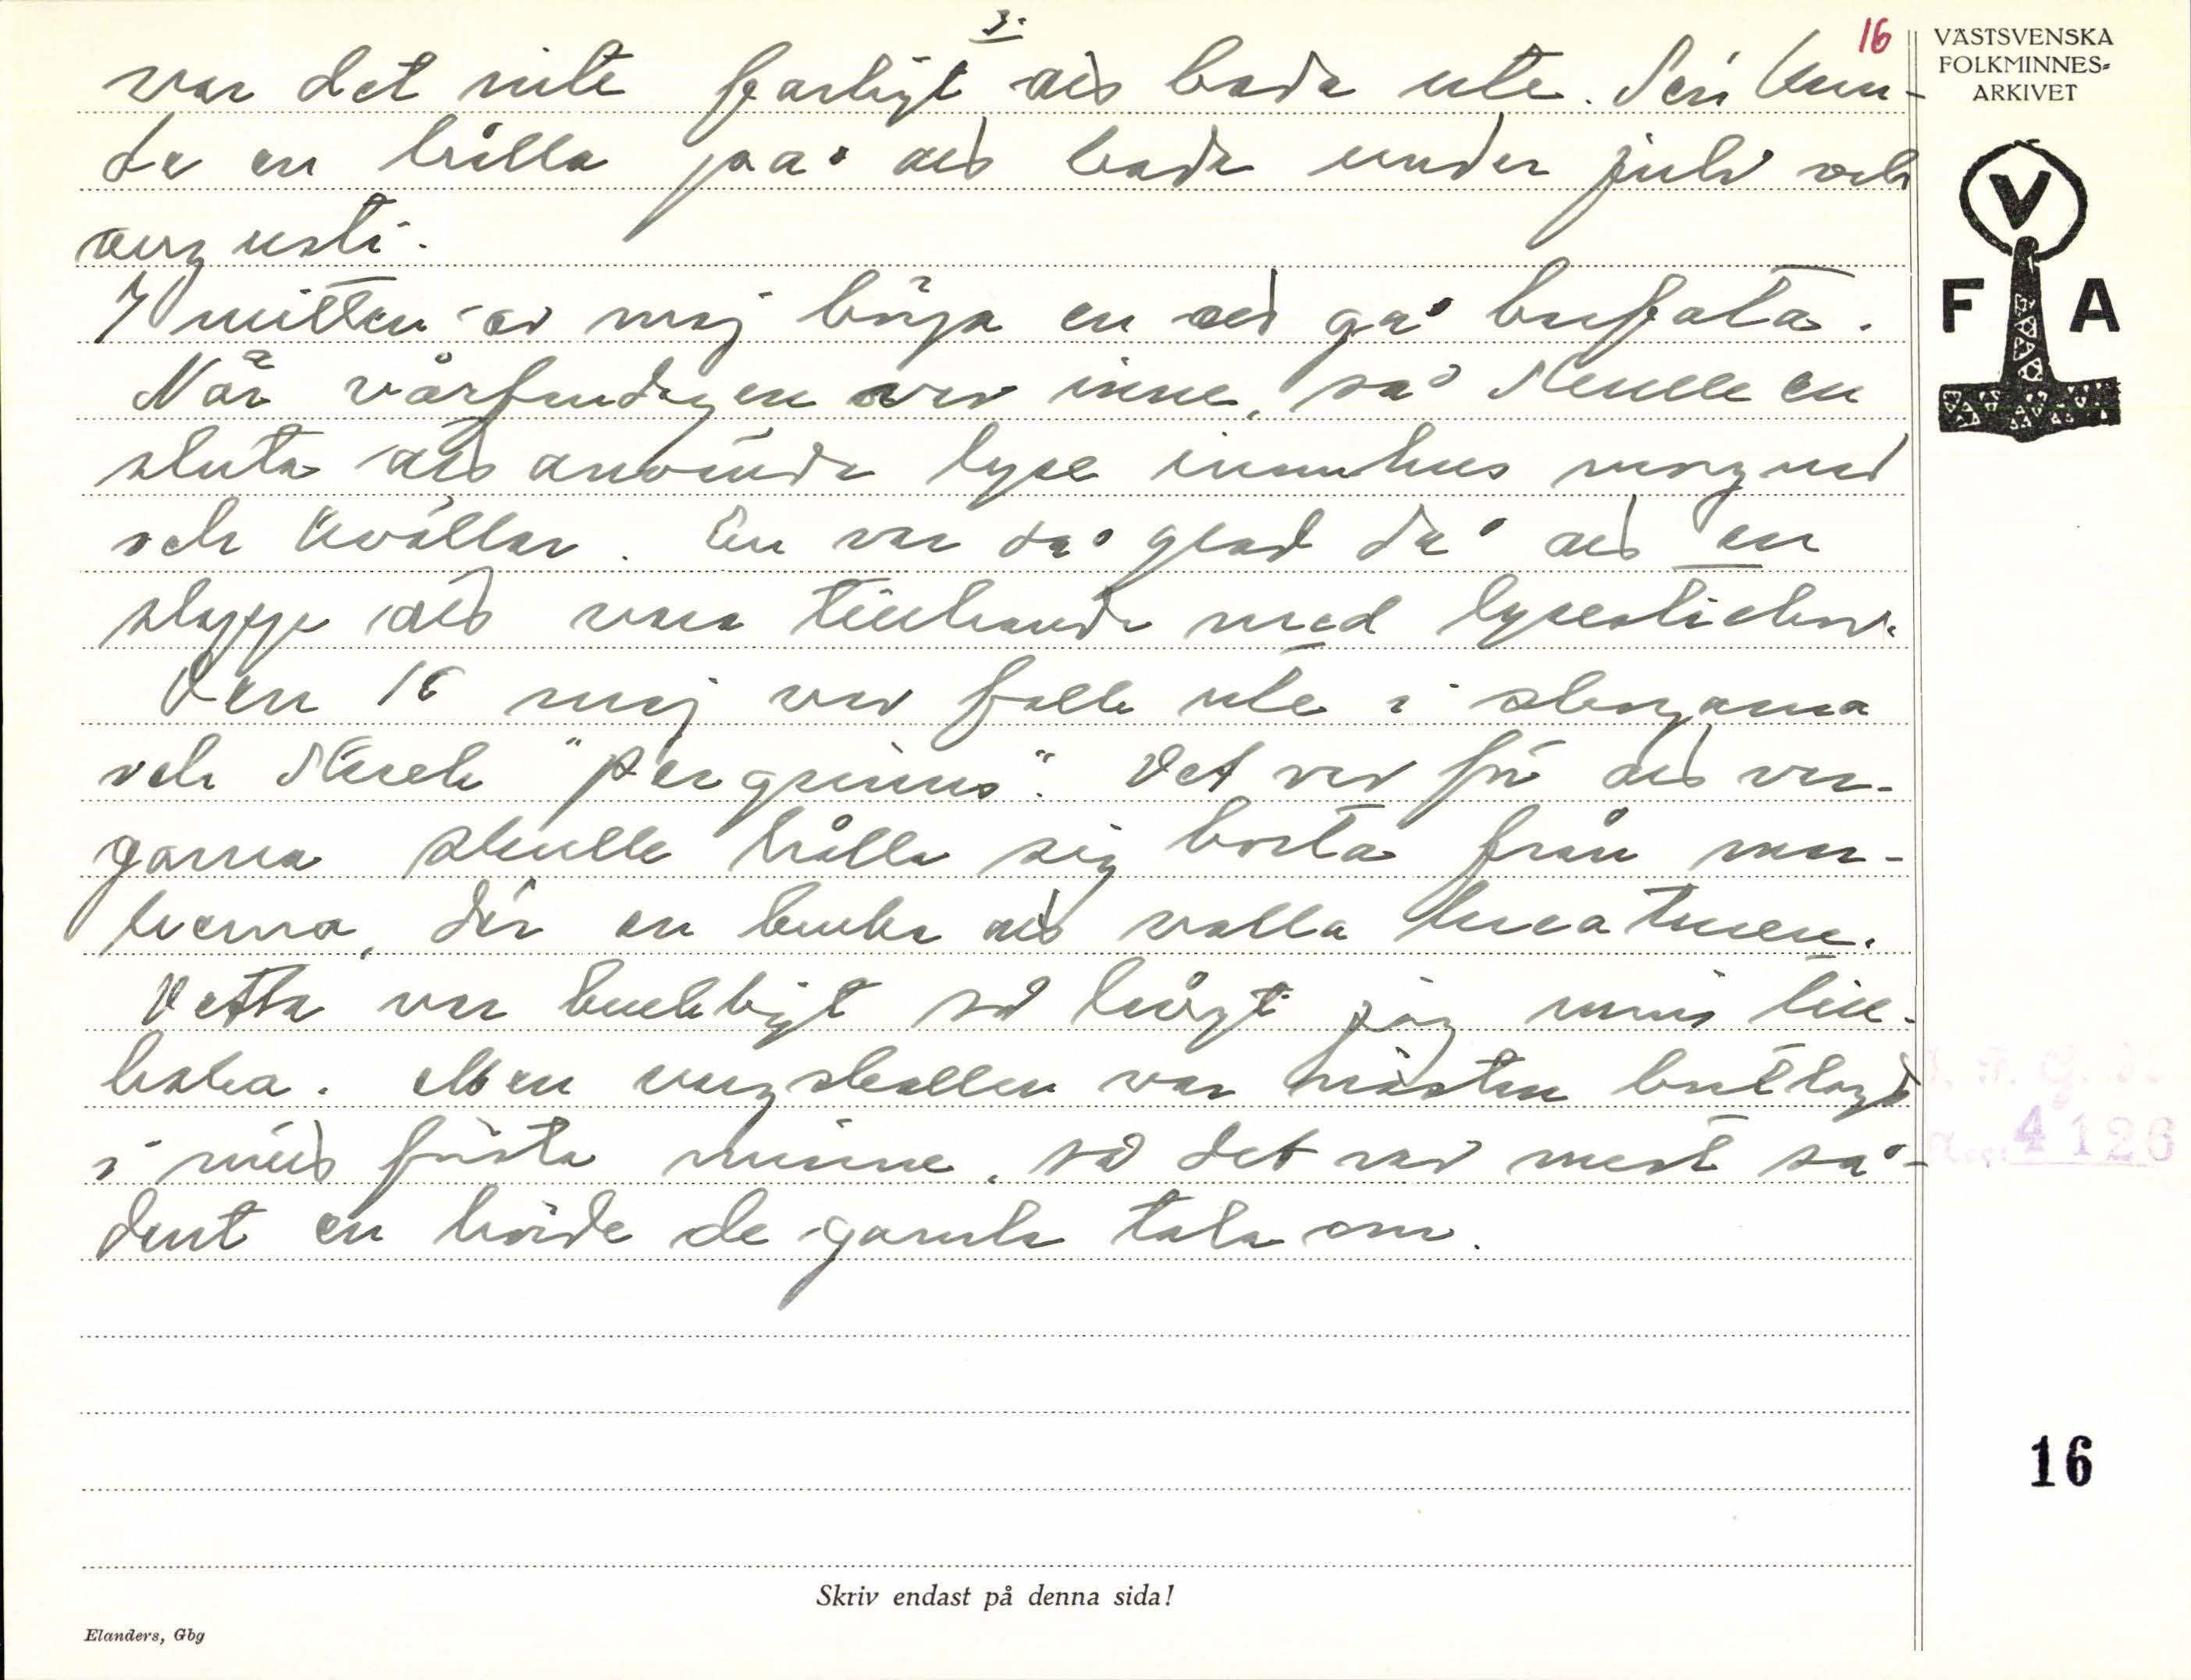 3.
16
var det inte farligt att bada ute. Sen kun-
de en hålla på att bada under juli och
augusti.
I mitten av maj börja en att gå barfota.
När vårfrudagen var inne, så skulle en
sluta att använda lyse inomhus morgnar
och kvällar. En var så glad då att en
slapp att vara tillhands med lysestickor.
Den 16 maj var folk ute i skogarna
och skrek "Pergrinus". Det var för att var-
garna skulle hålla sig borta från mar-
kerna, där en bruka att valla kreaturen.
Detta var brukligt så långt jag minns till-
baka. Men vargskallen var nästan bortlagt
i mitt första minne, så det var mest så-
dant en hörde de gamla tala om.
VÄSTSVENSKA
FOLKMINNES-
ARKIVET
V
F A
4126
16
Skriv endast på denna sida!
Elanders, Gbg